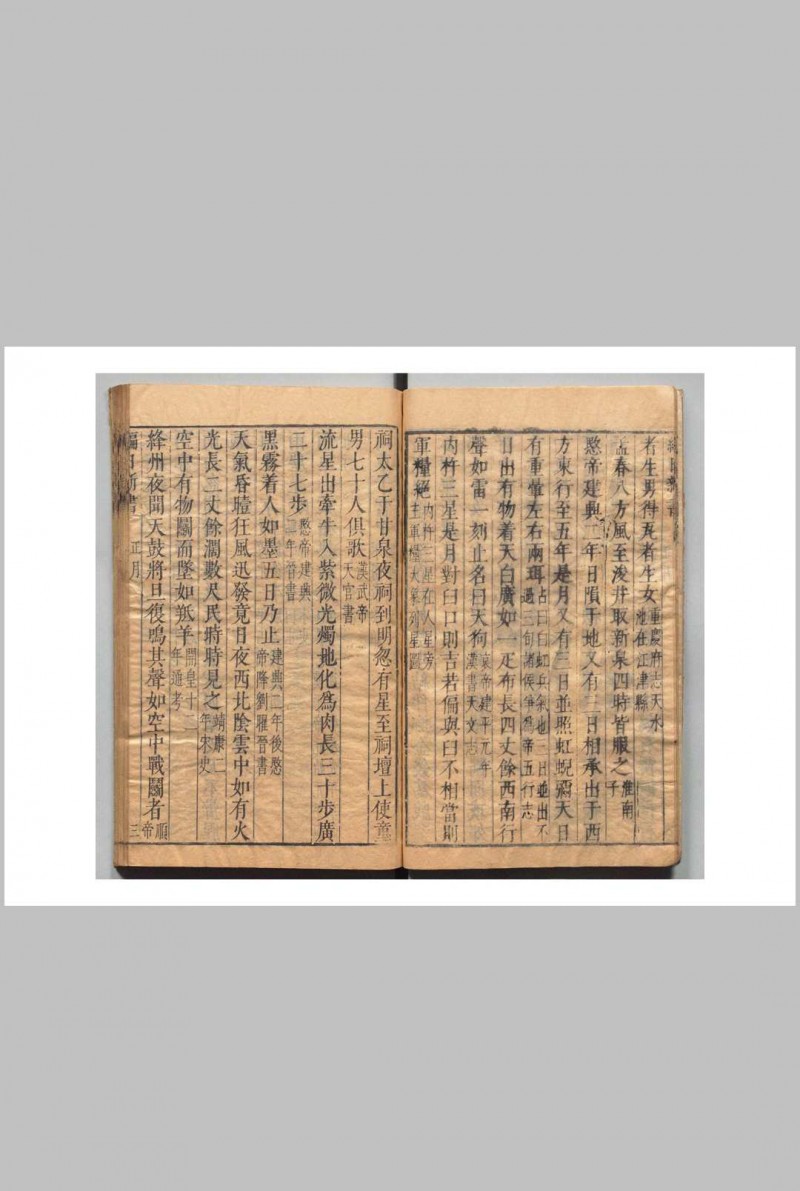 者生男得瓦者生女重慶府志天水
池在江津縣
孟春八方風至浚井取新泉四時皆服之淮南
子
愍帝建興二年日隕于地又有三日相承出于西
方東行至五年是月又有三日並照虹蜺彌天日
有重暈左右兩珥占曰白虹兵氣也三日並出不
過三旬諸侯爭爲帝五行志
日出有物着天白廣如一疋布長四丈餘西南行
聲如雷一刻止名曰天狗哀帝建平元年
漢書天文志
內杵三星是月對臼口則吉若偏與臼不相當則
軍糧絕內杵三星在人星旁
主軍糧
祠太乙于甘泉夜祠到明忽有星至祠壇上使童
男七十人俱歌漢武帝
天官書
流星出牽牛入紫微光燭地化爲肉長三十步廣
二十七步愍帝建興
二年晉書
黑霧着人如墨五日乃止建興二年後愍
帝降劉曜晉書
天氣昏曀狂風迅發竟日夜西北陰雲中如有火
光長二丈餘濶數尺民時時見之靖康二
年宋史
空中有物鬭而墜如羝羊開皇十二
年通考
絳州夜聞天鼓將旦復鳴其聲如空中戰鬭者順
帝
日新書 正月 三